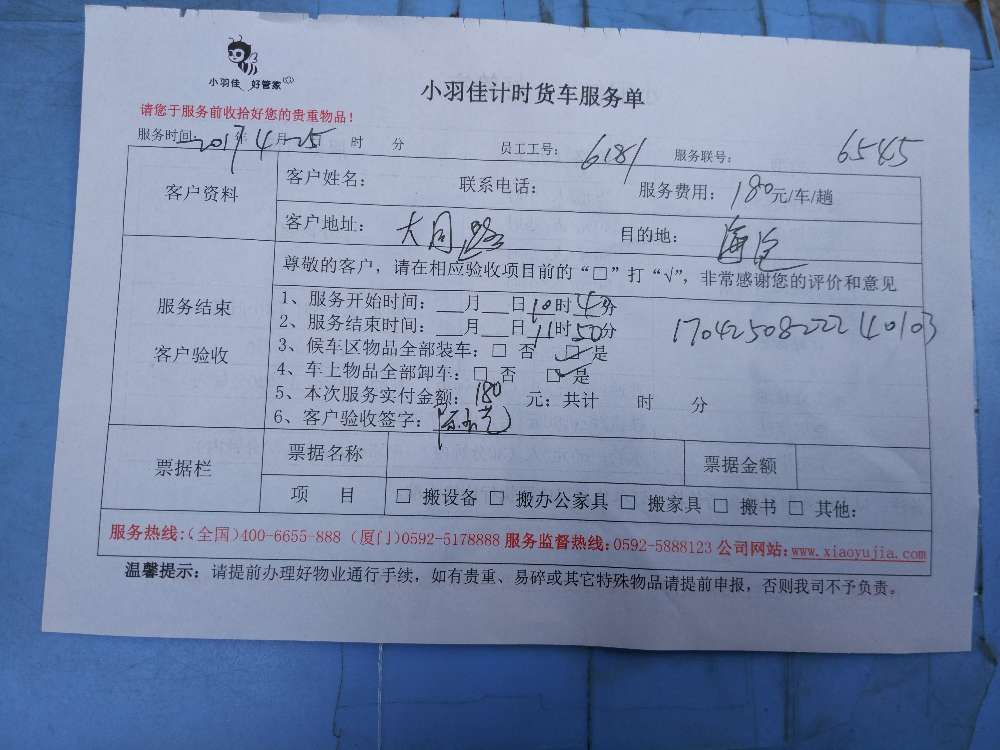 小羽佳 好管家
小羽佳计时货车服务单
请您于服务前收拾好您的贵重物品!
服务时间: 2017年4月25日 时 分 员工工号: 6181 服务联号: 6545
客户资料 客户姓名: 联系电话: 服务费用: 180元/车/趟
客户地址: 大同路 目的地: 海沧
服务结束 客户验收
尊敬的客户，请在相应验收项目前的“□”打“√”，非常感谢您的评价和意见
1、服务开始时间: 月 日10时40分
2、服务结束时间: 月 日11时50分
17042508222240103
3、候车区物品全部装车: □ 否 ☑ 是
4、车上物品全部卸车: □ 否 ☑ 是
5、本次服务实付金额: 180 元; 共计 时 分
6、客户验收签字:
票据栏 票据名称 票据金额
项 目 □ 搬设备 □ 搬办公家具 □ 搬家具 □ 搬书 □ 其他:
服务热线:(全国)400-6655-888 (厦门)0592-5178888 服务监督热线:0592-5888123 公司网站:www.xiaoyujia.com
温馨提示: 请提前办理好物业通行手续，如有贵重、易碎或其它特殊物品请提前申报，否则我司不予负责。